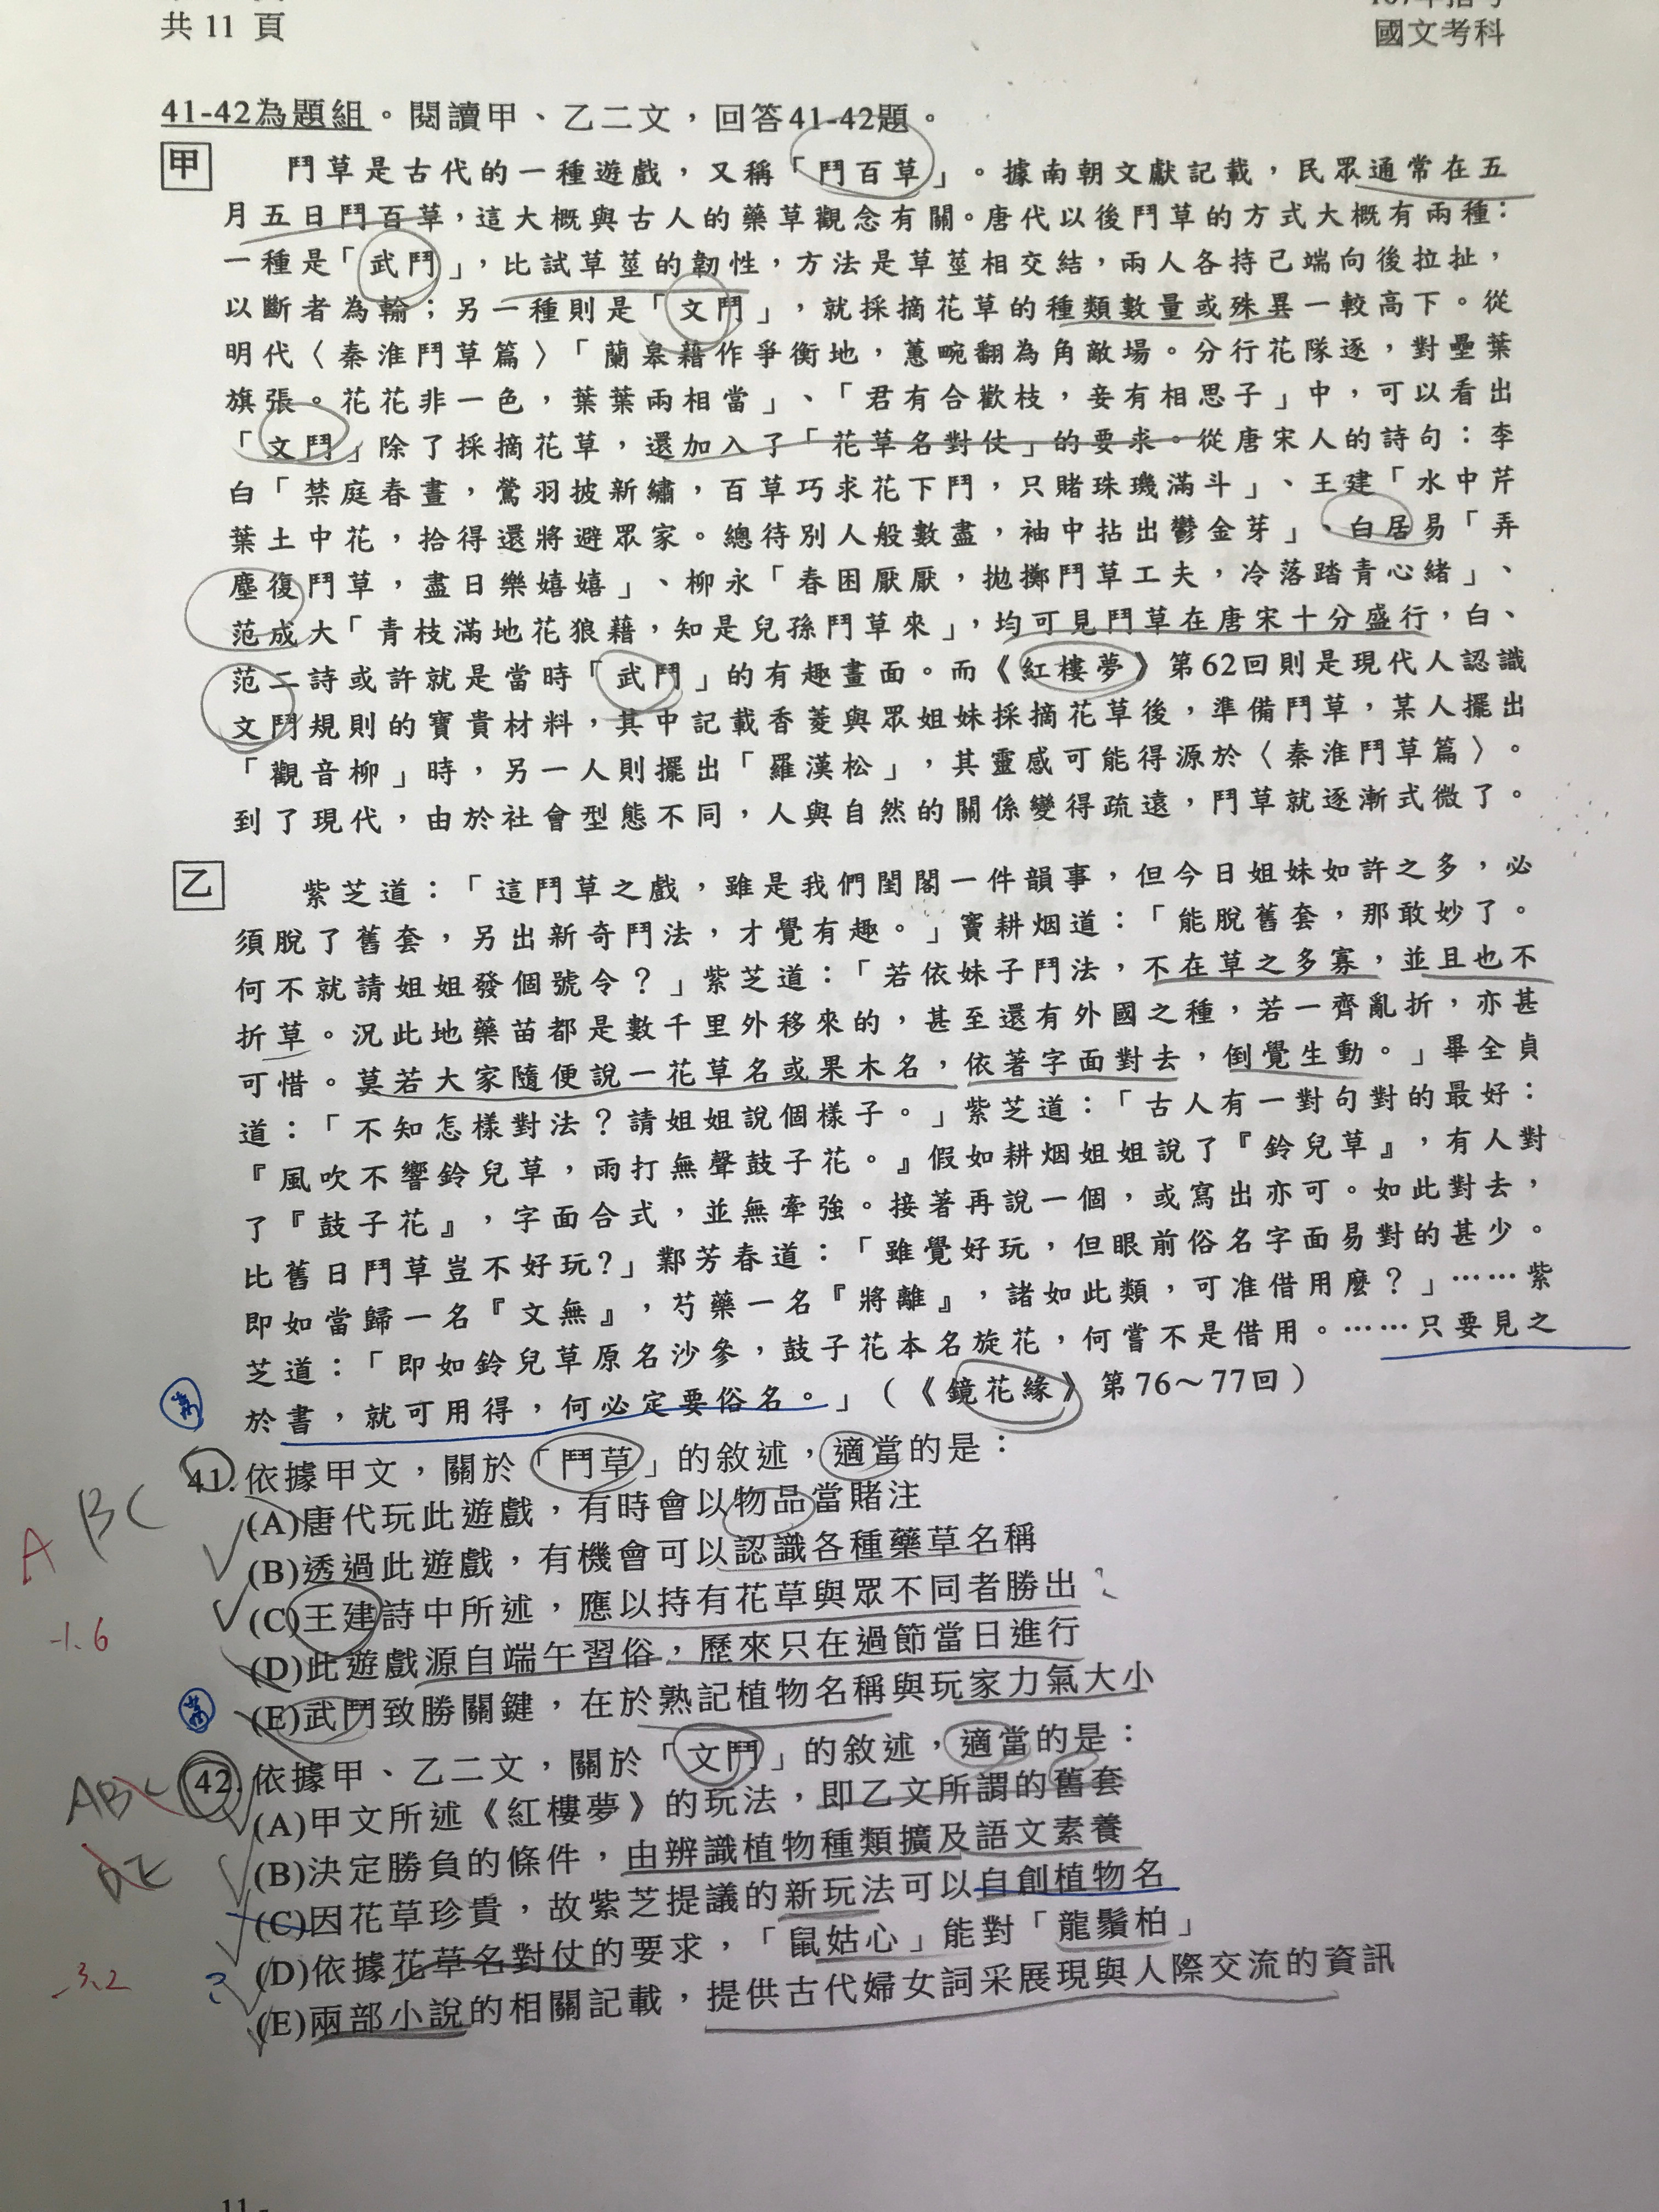 共 11 頁
國文考科
41-42為題組。閱讀甲、乙二文，回答41-42題。
甲 鬥草是古代的一種遊戲，又稱「鬥百草」。據南朝文獻記載，民眾通常在五
月五日鬥百草，這大概與古人的藥草觀念有關。唐代以後鬥草的方式大概有兩種：
一種是「武鬥」，比試草莖的韌性，方法是草莖相交結，兩人各持己端向後拉扯，
以斷者為輸；另一種則是「文鬥」，就採摘花草的種類數量或殊異一較高下。從
明代〈秦淮鬥草篇〉「蘭皋藉作爭衡地，蕙畹翻為角敵場。分行花隊逐，對壘葉
旗張。花花非一色，葉葉兩相當」、「君有合歡枝，妾有相思子」中，可以看出
「文鬥」除了採摘花草，還加入了「花草名對仗」的要求。從唐宋人的詩句：李
白「禁庭春晝，鶯羽披新繡，百草巧求花下鬥，只賭珠璣滿斗」、王建「水中芹
葉土中花，拾得還將避眾家。總待別人般數盡，袖中拈出鬱金芽」、白居易「弄
塵復鬥草，盡日樂嬉嬉」、柳永「春困厭厭，拋擲鬥草工夫，冷落踏青心緒」、
范成大「青枝滿地花狼藉，知是兒孫鬥草來」，均可見鬥草在唐宋十分盛行，白、
范二詩或許就是當時「武鬥」的有趣畫面。而《紅樓夢》第62回則是現代人認識
文鬥規則的寶貴材料，其中記載香菱與眾姐妹採摘花草後，準備鬥草，某人擺出
「觀音柳」時，另一人則擺出「羅漢松」，其靈感可能得源於〈秦淮鬥草篇〉。
到了現代，由於社會型態不同，人與自然的關係變得疏遠，鬥草就逐漸式微了。
乙 紫芝道：「這鬥草之戲，雖是我們閨閣一件韻事，但今日姐妹如許之多，必
須脫了舊套，另出新奇鬥法，才覺有趣。」竇耕烟道：「能脫舊套，那敢妙了。
何不就請姐姐發個號令？」紫芝道：「若依妹子鬥法，不在草之多寡，並且也不
折草。況此地藥苗都是數千里外移來的，甚至還有外國之種，若一齊亂折，亦甚
可惜。莫若大家隨便說一花草名或果木名，依著字面對去，倒覺生動。」畢全貞
道：「不知怎樣對法？請姐姐說個樣子。」紫芝道：「古人有一對句對的最好：
『風吹不響鈴兒草，雨打無聲鼓子花。』假如耕烟姐姐說了『鈴兒草』，有人對
了『鼓子花』，字面合式，並無牽強。接著再說一個，或寫出亦可。如此對去，
比舊日鬥草豈不好玩?」鄴芳春道：「雖覺好玩，但眼前俗名字面易對的甚少。
即如當歸一名『文無』，芍藥一名『將離』，諸如此類，可准借用麼？」……紫
芝道：「即如鈴兒草原名沙參，鼓子花本名旋花，何嘗不是借用。……只要見之
於書，就可用得，何必定要俗名。」（《鏡花緣》第76～77回）
41.依據甲文，關於「鬥草」的敘述，適當的是：
(A)唐代玩此遊戲，有時會以物品當賭注
(B)透過此遊戲，有機會可以認識各種藥草名稱
(C)王建詩中所述，應以持有花草與眾不同者勝出
(D)此遊戲源自端午習俗，歷來只在過節當日進行
(E)武鬥致勝關鍵，在於熟記植物名稱與玩家力氣大小
BC
A
-1.6
42.依據甲、乙二文，關於「文鬥」的敘述，適當的是：
(A)甲文所述《紅樓夢》的玩法，即乙文所謂的舊套
(B)決定勝負的條件，由辨識植物種類擴及語文素養
(C)因花草珍貴，故紫芝提議的新玩法可以自創植物名
(D)依據花草名對仗的要求，「鼠姑心」能對「龍鬚柏」
(E)兩部小說的相關記載，提供古代婦女詞采展現與人際交流的資訊
ABC
DE
-3.2